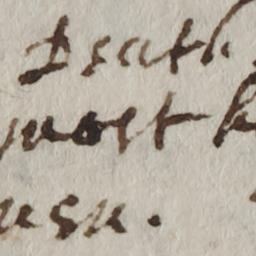 Death
most h
usu.